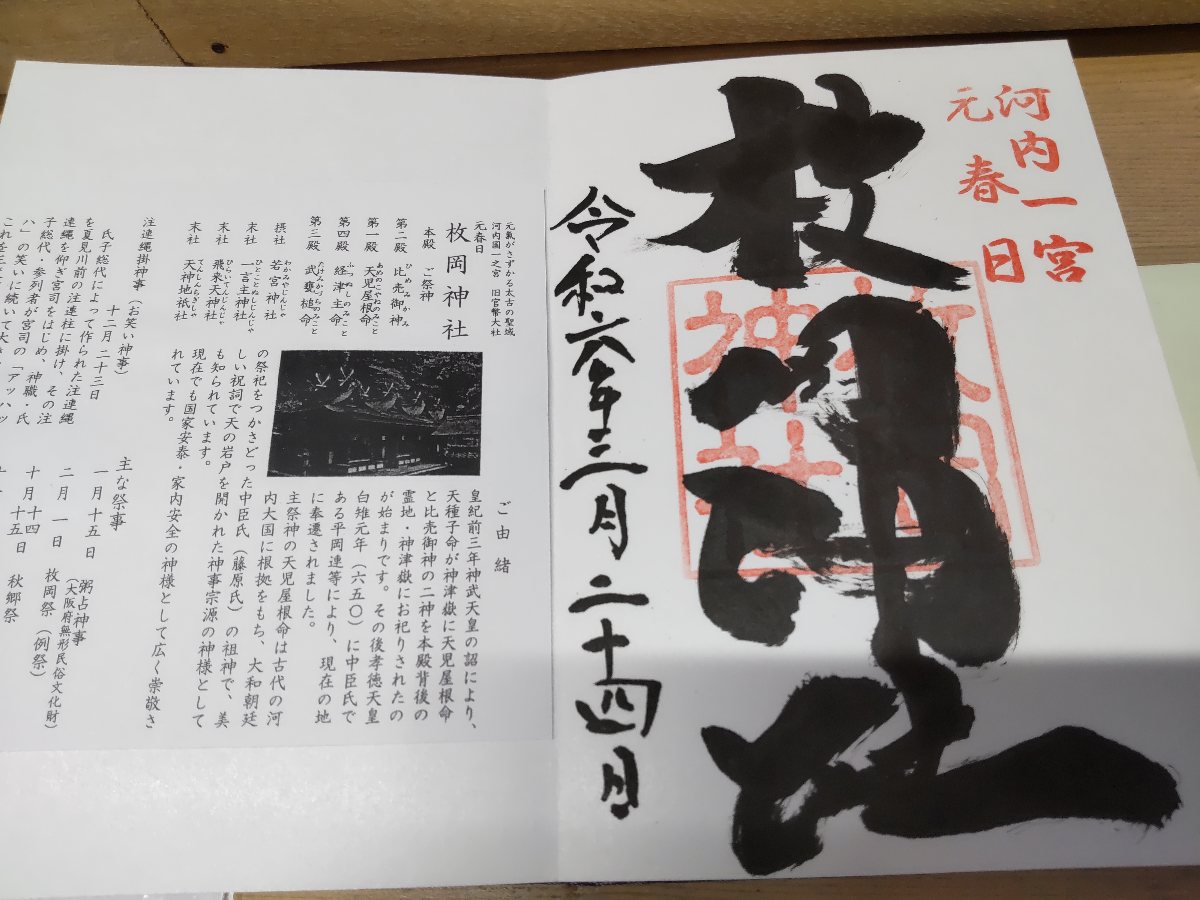 河内一宮
元春日
枚岡神社
枚岡神社
令和六年三月二十四日
元氣がさずかる太古の聖域
河内国一之宮 旧官幣大社
元春日
枚岡神社
本殿 ご祭神
第二殿 比売御神
ひめみかみ
第一殿 天児屋根命
あめのこやねのみこと
第四殿 経津主命
ふつぬしのみこと
第三殿 武甕槌命
たけみかづちのみこと
摂社 若宮神社
わかみやじんじゃ
末社 一言主神社
ひとことぬしじんじゃ
末社 飛来天神社
ひらいてんじんしゃ
末社 天神地祇社
てんしんちぎしゃ
ご由緒
皇紀前三年神武天皇の詔により、
天種子命が神津嶽に天児屋根命
と比売御神の二神を本殿背後の
霊地・神津嶽にお祀りされたの
が始まりです。その後孝徳天皇
白雉元年(六五〇)に中臣氏で
ある平岡連等により、現在の地
に奉遷されました。
主祭神の天児屋根命は古代の河
内大国に根拠をもち、大和朝廷
の祭祀をつかさどった中臣氏(藤原氏)の祖神で、美
しい祝詞で天の岩戸を開かれた神事宗源の神様として
も知られています。
現在でも国家安泰・家内安全の神様として広く崇敬さ
れています。
注連縄掛神事(お笑い神事)
十二月 二十三日
氏子総代によって作られた注連縄
を夏見川前の注連柱に掛け、その注
連縄を仰ぎ宮司をはじめ、神職・氏
子総代・参列者が宮司の「アッハッ
ハ」の笑いに続いて大き
主な祭事
一月 十五日 粥占神事
(大阪府無形民俗文化財)
二月 一日 枚岡祭(例祭)
十月 十四
十五日 秋郷祭